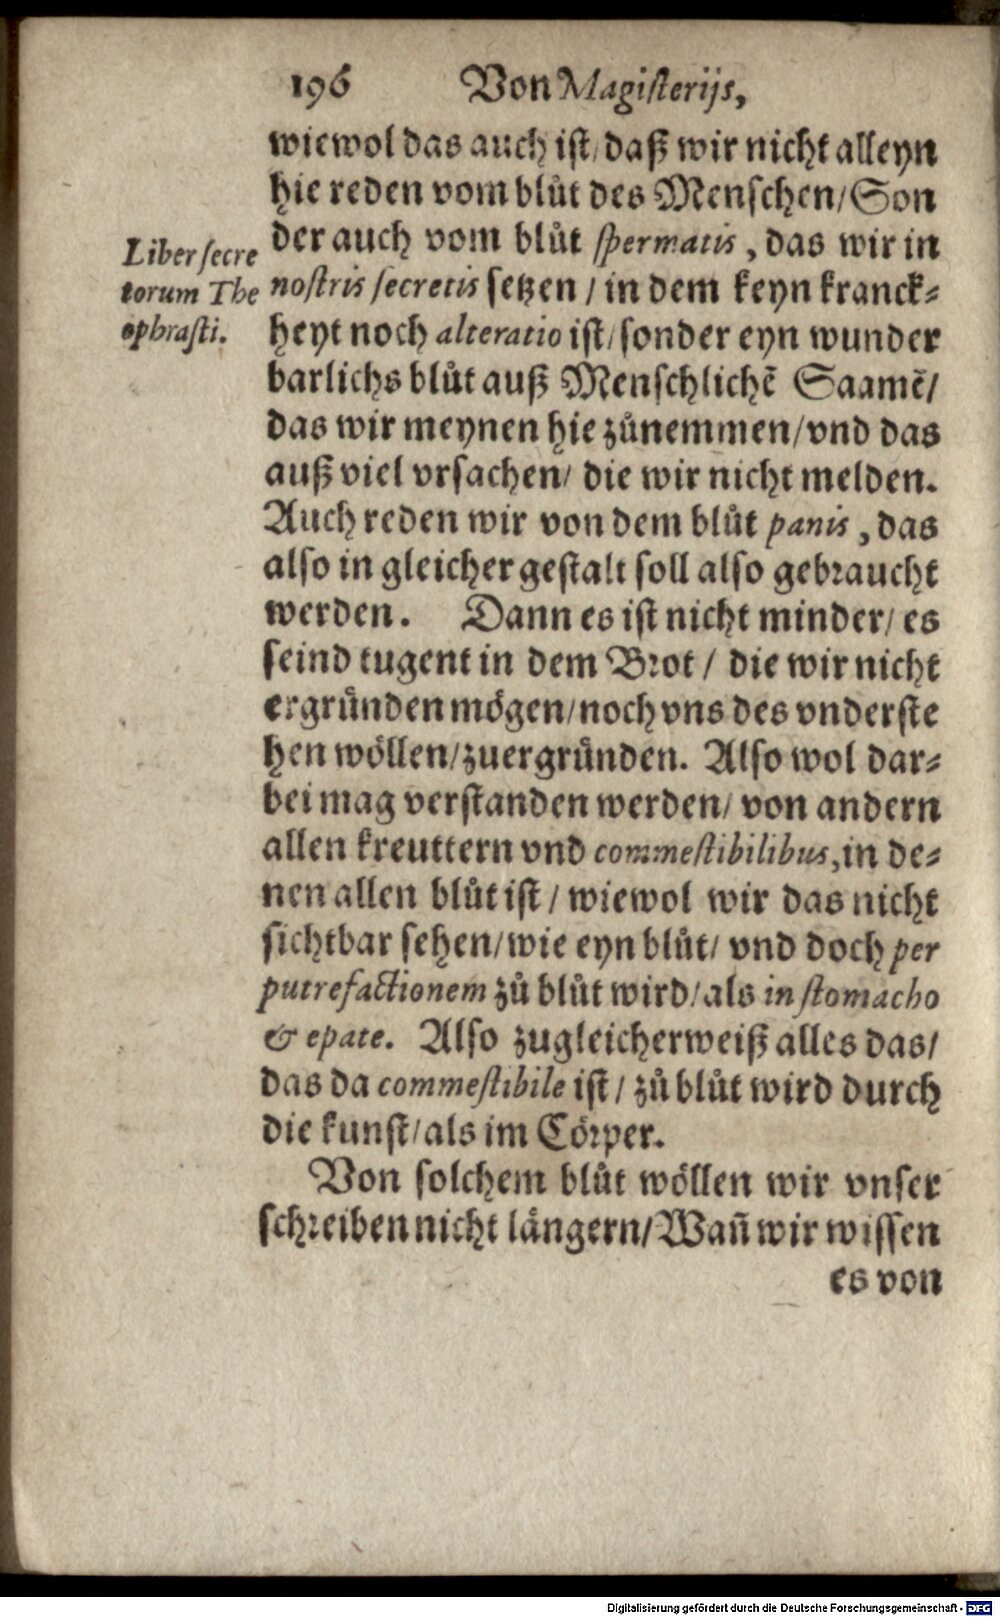 196 Von Magisterijs,
wiewol das auch ist/ daß wir nicht alleyn
hie reden vom blůt des Menschen/ Son
der auch vom blůt spermatis, das wir in
nostris secretis setzen / in dem keyn kranck⸗
heyt noch alteratio ist/ sonder eyn wunder
barlichs blůt auß Menschlichẽ Saamẽ/
das wir meynen hie zůnemmen/ vnd das
auß viel vrsachen/ die wir nicht melden.
Auch reden wir von dem blůt panis, das
also in gleicher gestalt soll also gebraucht
werden. Dann es ist nicht minder/ es
seind tugent in dem Brot / die wir nicht
ergründen mögen/ noch vns des vnderste
hen wöllen/ zuergründen. Also wol dar⸗
bei mag verstanden werden/ von andern
allen kreuttern vnd commestibilibus, in de⸗
nen allen blůt ist / wiewol wir das nicht
sichtbar sehen/ wie eyn blůt/ vnd doch per
putrefactionem zů blůt wird/ als in stomacho
& epate. Also zugleicherweiß alles das/
das da commestibile ist / zů blůt wird durch
die kunst/ als im Cörper.
Von solchem blůt wöllen wir vnser
schreiben nicht längern/ Wañ wir wissen
es von
Liber secre
torum The
ophrasti.
Digitalisierung gefördert durch die Deutsche Forschungsgemeinschaft - DFG